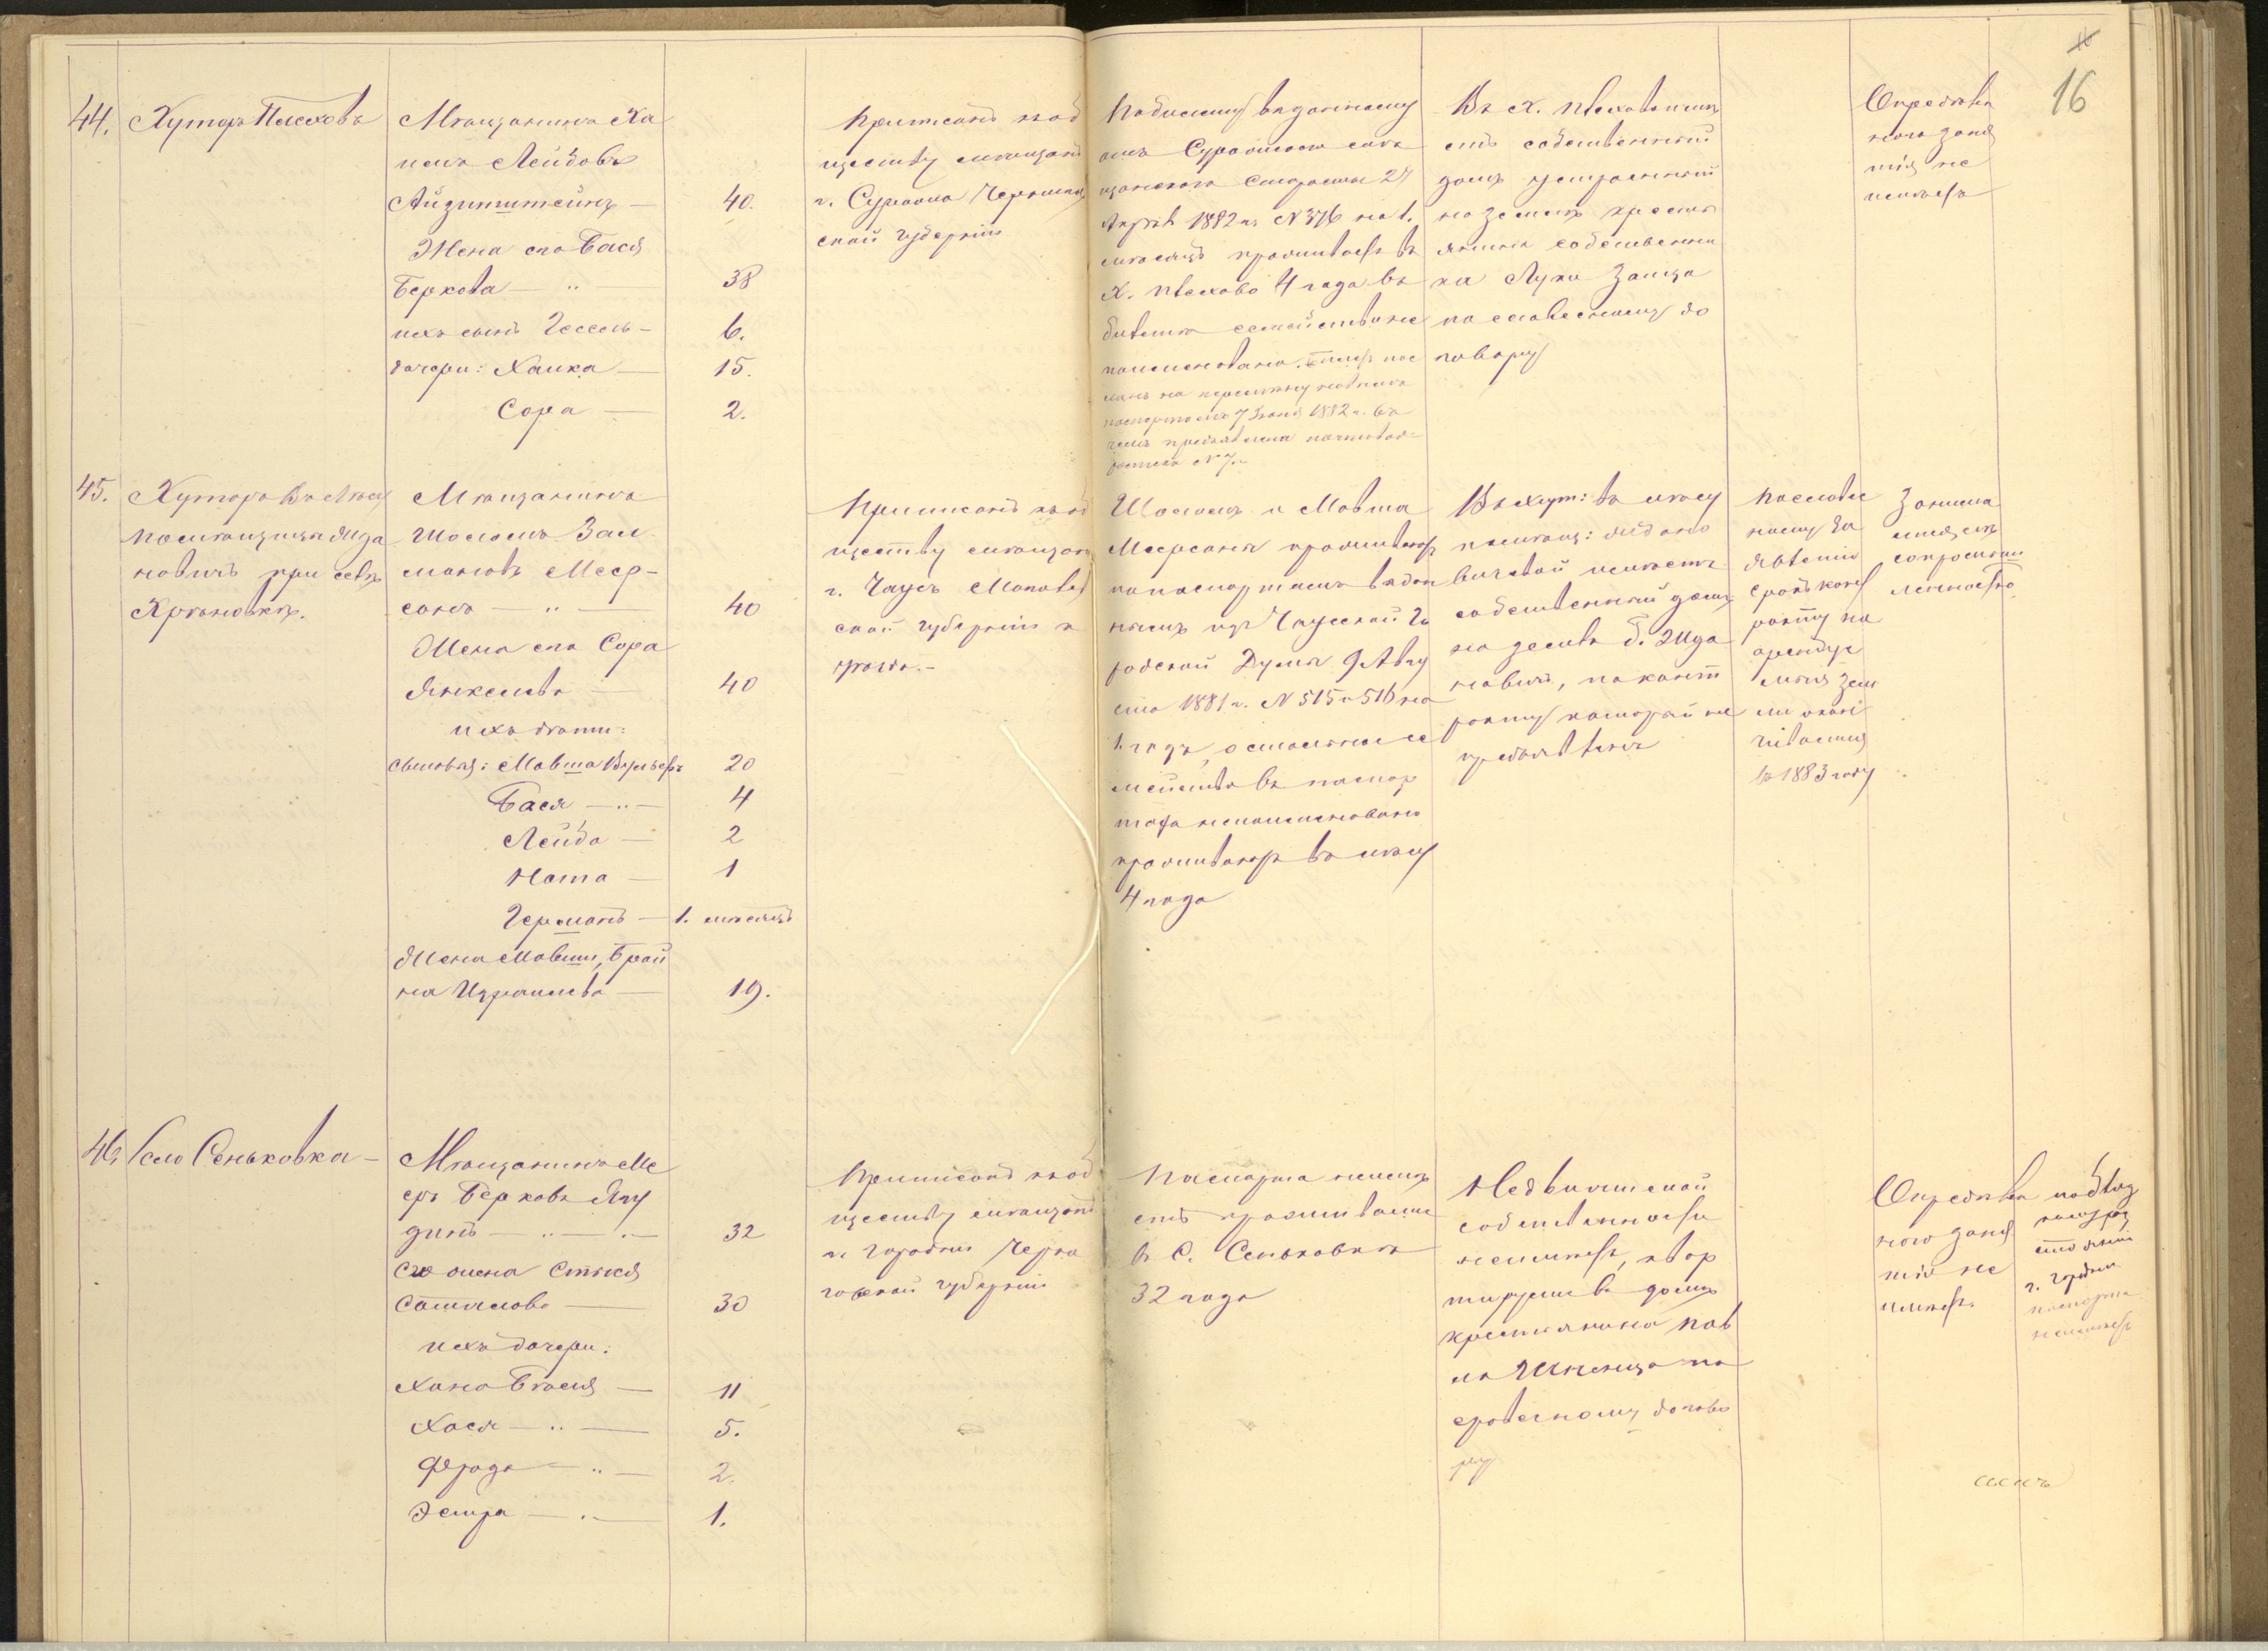 16
44. Хуторъ Плеховъ
Мѣщанинъ Ха
имъ Лейбовъ
Айзитштейнъ — 40.
Жена его Бася
Беркова — " — 38
ихъ сынъ Гессель — 6.
дочери: Ханка — 15.
Сора — 2.
Приписанъ къ об
ществу мѣщанъ
г. Суража Чернигов
ской губерніи
По билету выданному
отъ Суражскаго мѣ
щанскаго Старосты 27
1882 г. N 376 на 1.
мѣсяцъ проживаетъ въ
х. Плехово 4 года въ
билетѣ семейство не
поименовано.
на перемѣну
1882 г.
N 7.
Въ х. Плеховѣ имѣ
етъ собственный
домъ устроенный
на землѣ кресть
янина собственни
ка Луки Заица
по словесному до
говору
Опредѣлен
наго заня
тія не
имѣетъ
45. Хуторъ въ лѣсу
помѣщицы Жда
новичъ при селѣ
Хрѣновкѣ.
Мѣщанинъ
Шоломъ Зал
мановъ Меер-
сонъ — " — 40
Жена его Сора
Янкелева — 40
ихъ дѣти:
сыновья: Мовша 20
Бася — " — 4
Лейба — 2
Нота — 1
Германъ — 1. мѣсяцъ
Жена Мовши, Брай
на Израилева — 19.
Приписанъ къ об
ществу мѣщанъ
г. Чаусъ Могилев
ской губерніи
Шоломъ и Мовша
Меерсоны проживаютъ
по паспортамъ выдан
нымъ изъ Чаусской Го
родской Думы 9 Авгу
ста 1881 г. N 515 и 516 на
1. годъ, остальное се
мейство въ паспор
тахъ непоименовано
проживаютъ въ лѣсу
4 года
Въ хут: въ лѣсу
помѣщ: Ждано
вичевой имѣетъ
собственный домъ
на землѣ б. Жда
новичъ, по конт
ракту который не
предъявленъ
По словес
ному за
явленію
срокъ конт
ракту на
арендуе
мыя зем
ли оканч
чивается
въ 1883 году
Занима
ется
46. Село Сеньковка —
Мѣщанинъ Ме
еръ Берковъ Ягу
динъ — " — 32
его жена Стыся
30
ихъ дочери:
Хана Брася — 11
Хася — " — 5.
Фрада — " — 2.
Эстра — " — 1.
Приписанъ къ об
ществу мѣщанъ
г. Городни Черни
говской губерніи
Паспорта неимѣ
етъ проживаетъ
въ С. Сеньковкѣ
32 года
Недвижимой
собственности
неимѣетъ, квар
тируетъ въ домѣ
крестьянина Пав
ла Шкенца по
словесному догово
ру
Опредѣлен
наго заня
тія не
имѣетъ.
г. Городни
паспорта
неимѣетъ